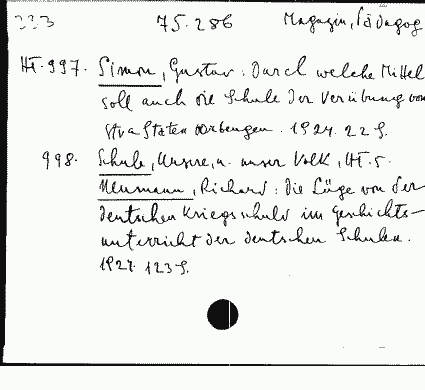 333 75.286 Magazin, Pädagog
Ht. 997. Simon, Gustav: Durch welche Mittel
soll auch die Schule der Verübung von
Straftaten vorbeugen. 1924. 22 S.
998. Schule, Unsre, u. unser Volk, Ht. 5.
Neumann, Richard: Die Lüge von der
deutschen Kriegsschuld im Geschichts-
unterricht der deutschen Schulen.
1927. 123 S.